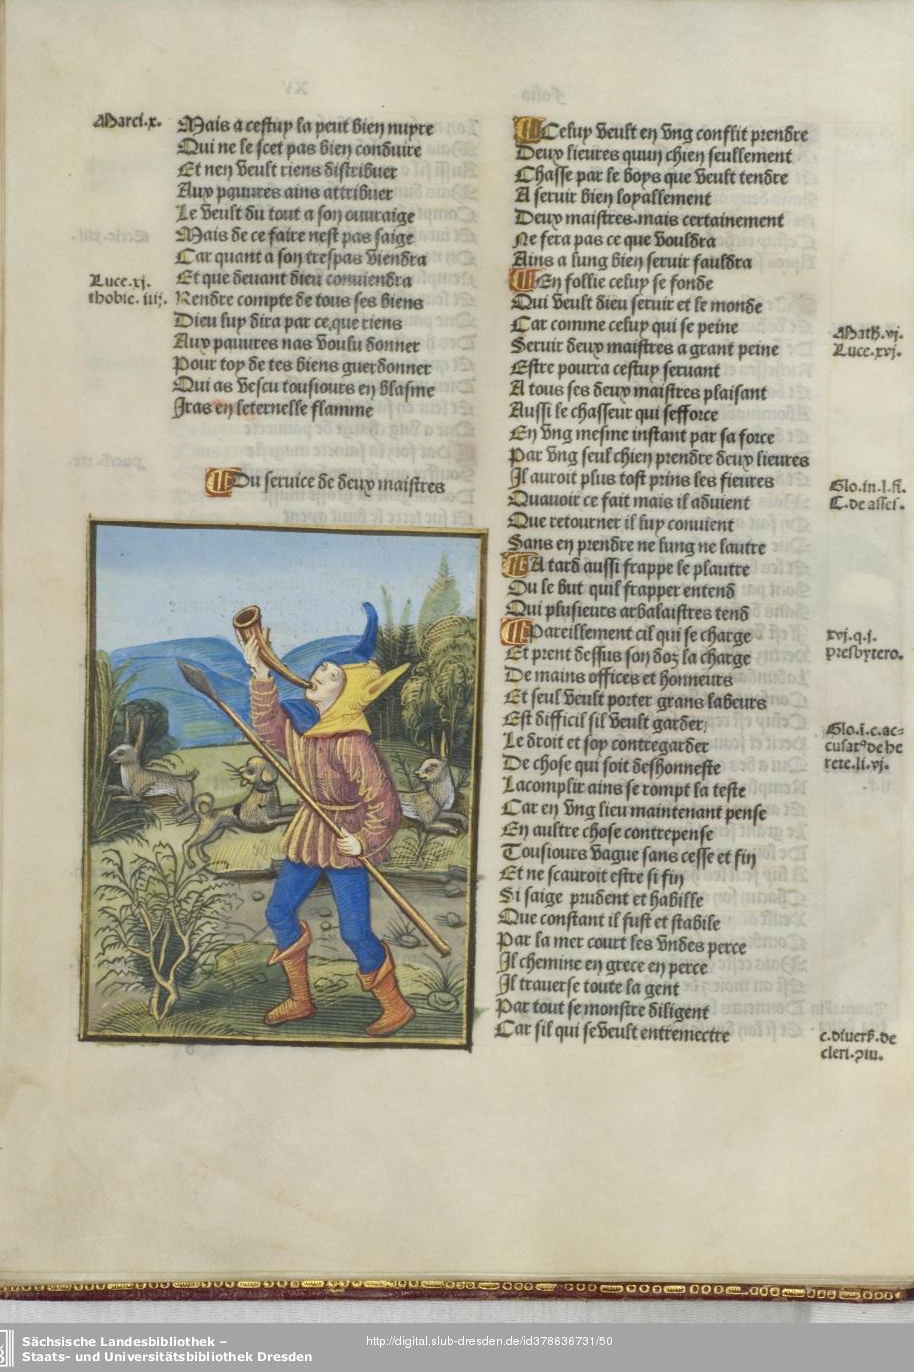 Marci.x.
Mais a cestuy la peut bien nuyre
Qui ne le scet pas bien conduire
Et nen veult riens distribuer
Aux pauures ains attribuer
Le veult du tout a son ouuraige
Mais de ce faire nest pas saige
Car quant a son trespas viendra
Luce.xj.
Et que deuant dieu conuiendra
thobie.iiij.
Rendre compte de tous ses biens
Dieu luy dira par ce,que riens
Aux pauures nas voulu donner
Pour toy de tes biens guerdonner
Qui as vescu tousiours en blasme
Iras en leternelle flamme
Du seruice de deux maistres
Celuy veult en vng conflit prendre
Deux lieures quun chien seullement
Chasse par le boys que veult tendre
A seruir bien loyallement
Deux maistres.mais certainement
Ne fera pas ce que vouldra
Ains a lung bien seruir fauldra
En follie celuy se fonde
Qui veult dieu seruir et le monde
Math.vj.
Car comme celuy qui se peine
Luce.xvj.
Seruir deux maistres a grant peine
Estre pourra cestuy seruant
A tous ses deux maistres plaisant
Aussi le chasseur qui sefforce
En vng mesme instant par sa force
Par vng seul chien prendre deux lieures
Il auroit plus tost prins les fieures
Glo.in.l.fi.
Quauoir ce fait mais il aduient
C.de assei.
Que retourner il luy conuient
Sans en prendre ne lung ne lautre
A tard aussi frappe le plautre
Ou le but quil frapper entend
Qui plusieurs arbalaistres tend
Pareillement cil qui se charge
xvj.q.j.
Et prent dessus son doz la charge
presbytero.
De mains offices et honneurs
Et seul veult porter grans labeurs
Est difficil sil veult garder
Glo.i.c.ac=
Le droit et soy contregarder
cusatꝰ de he
De chose qui soit deshonneste
rete.li.vj.
Lacomplir ains se rompt la teste
Car en vng lieu maintenant pense
En aultre chose contrepense
Tousiours vague sans cesse et fin
Et ne scauroit estre si fin
Si saige prudent et habille
Que constant il fust et stabile
Par la mer court les vndes perce
Il chemine en grece en perce
Il trauerse toute la gent
Par tout se monstre diligent
Car sil qui se veult entremectre
cleri.
Sächsische Landesbibliothek –
Staats- und Universitätsbibliothek Dresden
http://digital.slub-dresden.de/id378636731/50